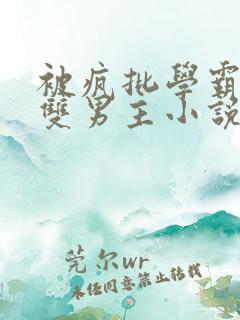 被疯批學霸
雙男主小說
莞尔wr
未经同意禁止转载